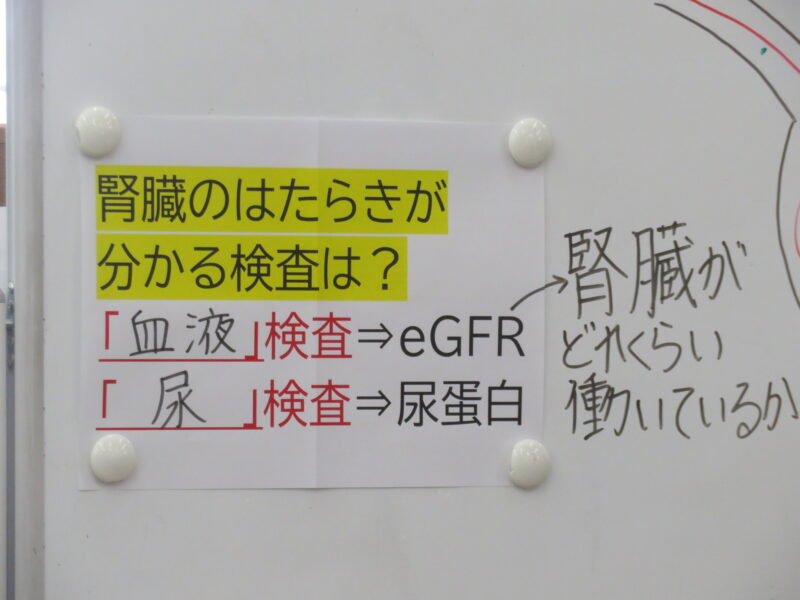 腎臓のはたらきが
分かる検査は？
「血液」検査⇒eGFR
「尿」検査⇒尿蛋白
→腎臓が
どれくらい
働いているか